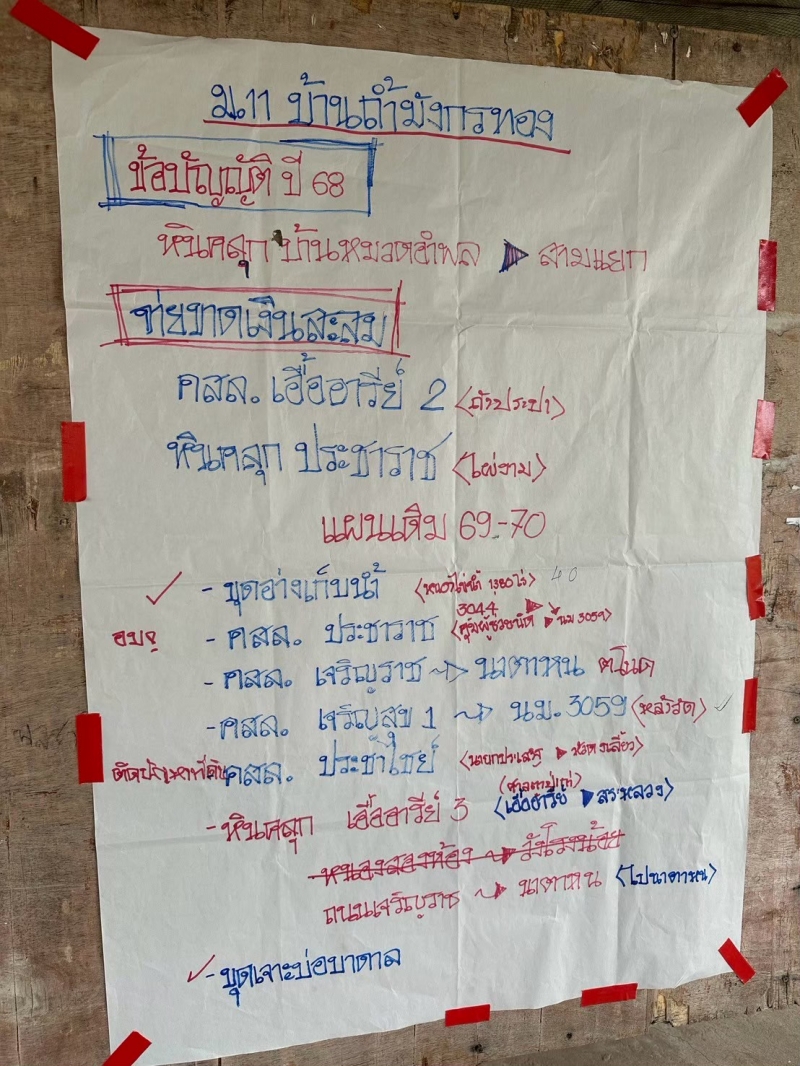 ม.11 บ้านถ้ำมังกรทอง
ข้อบัญญัติ ปี 68
หินคลุก บ้านหมวดอำพล ▶ สามแยก
จ่ายขาดเงินสะสม
คสล. เอื้ออารีย์ 2 <ถังประปา>
หินคลุก ประชาราช <ไผ่งาม>
แผนเดิม 69-70
✓ - ขุดอ่างเก็บน้ำ 40
3044
อบจ - คสล. ประชาราช ▶ นม 3059>
- คสล. เจริญราช ~> นาตาหน ตโนด
- คสล. เจริญสุข 1 ~> นม. 3059 (หลังวัด) ✓
ติดปัญหาที่ดิน คสล. ประชาไชย์
(ศาลตาปู่เก่า)
- หินคลุก เอื้ออารีย์ 3 <เอื้ออารีย์ ▶ สระหลวง>
หนองสองห้อง ~> วังโรงน้อย
ถนนเจริญราช ~> นาตาหน <ไปนาตาหน>
✓ - ขุดเจาะบ่อบาดาล